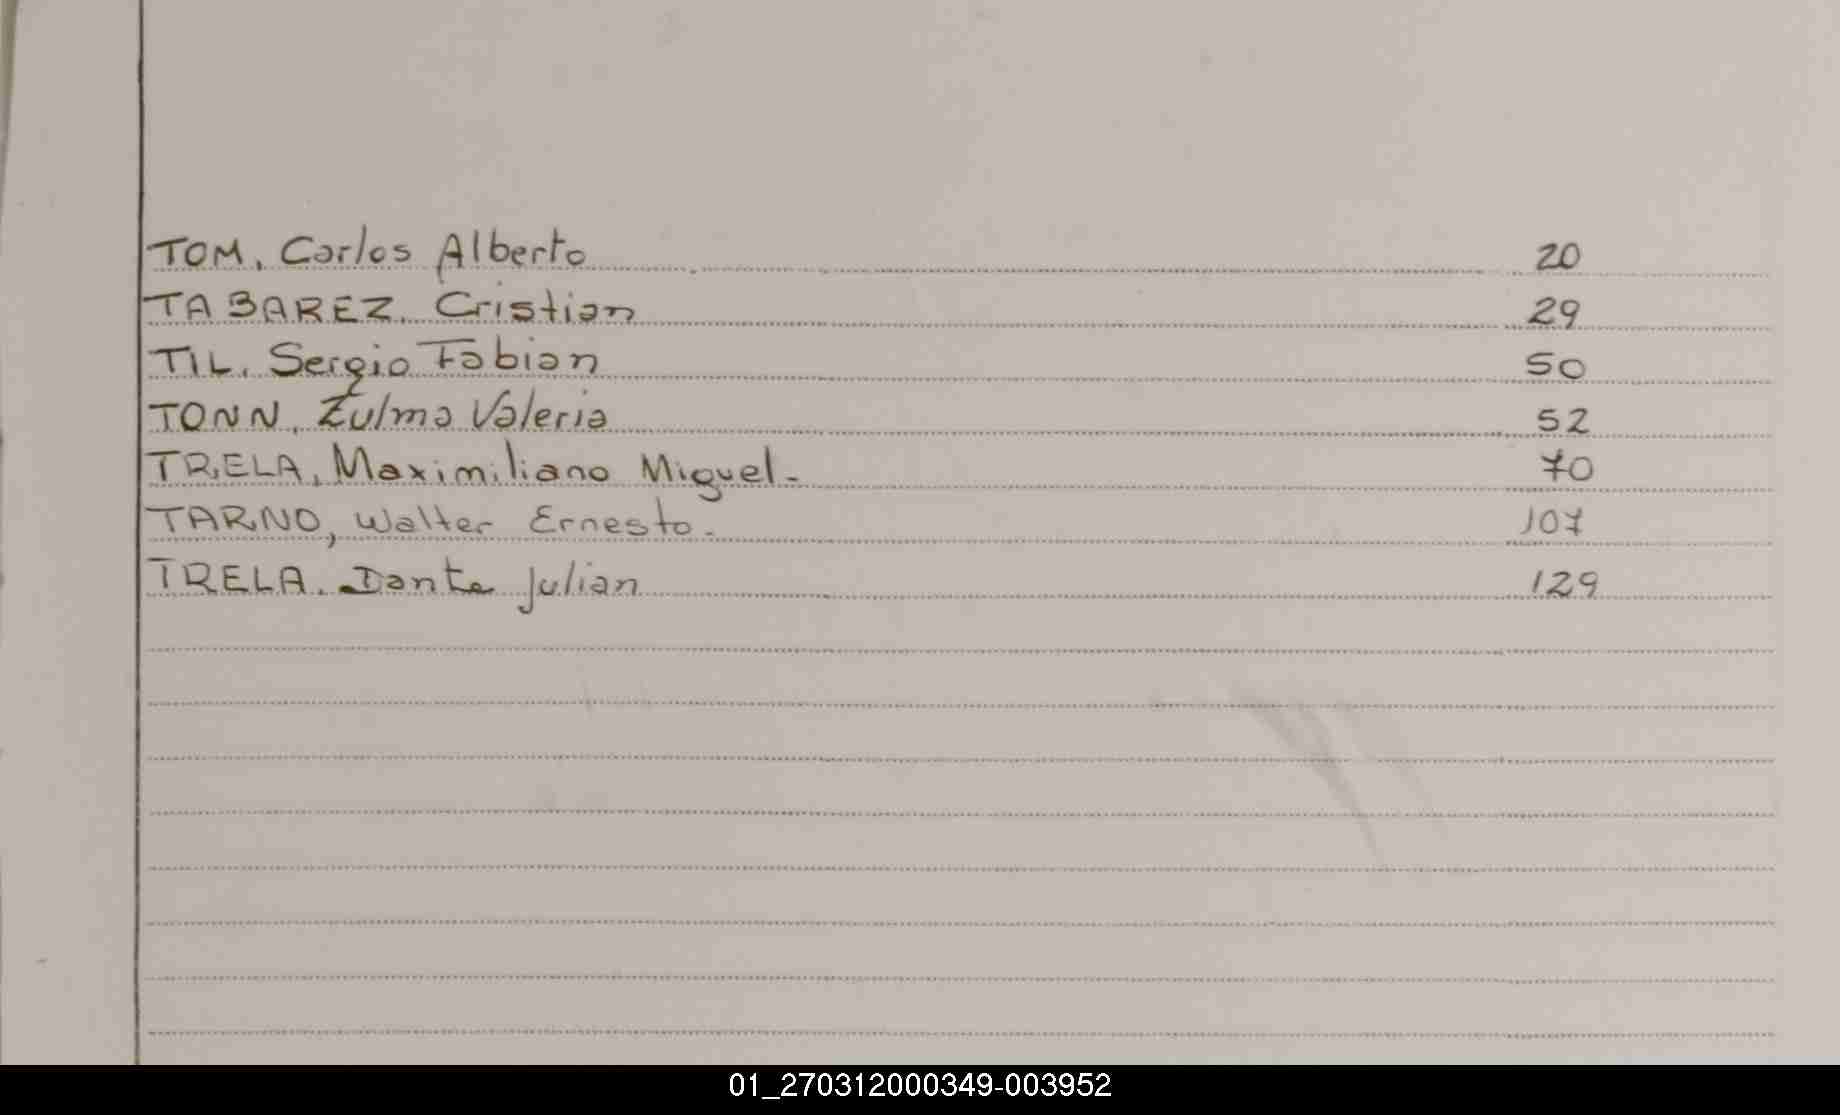 TOM, Carlos Alberto 20
TABAREZ, Cristian 29
TIL, Sergio Fabian 50
TONN, Zulma Valeria 52
TRELA, Maximiliano Miguel- 70
TARNO, Walter Ernesto- 107
TRELA, Dante Julian 129
01_270312000349-003952